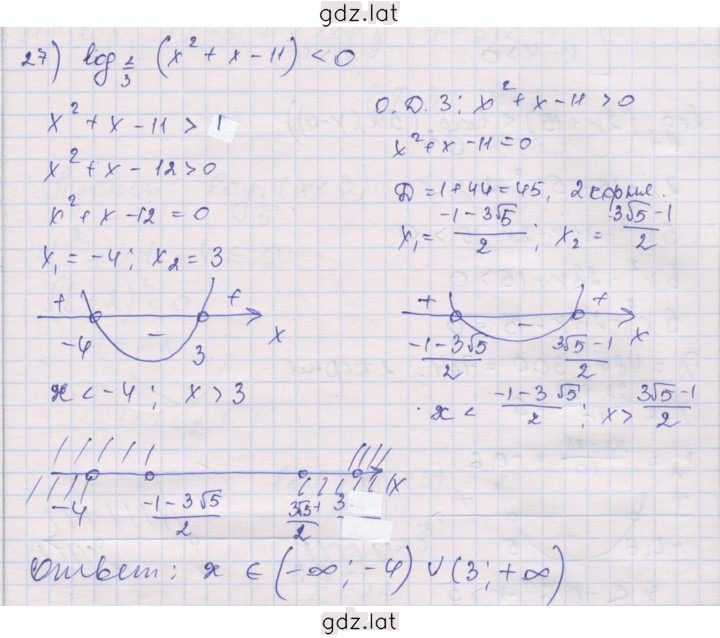 gdz.lat
27) log 1/3 (x² + x - 11) < 0
x² + x - 11 > 1
x² + x - 12 > 0
x² + x - 12 = 0
x₁ = -4; x₂ = 3
+ - + x
-4 3
x < -4; x > 3
О.Д.З: x² + x - 11 > 0
x² + x - 11 = 0
D = 1 + 44 = 45, 2 корня.
x₁ = (-1 - 3√5)/2; x₂ = (3√5 - 1)/2
+ - + x
(-1 - 3√5)/2 (3√5 - 1)/2
x < (-1 - 3√5)/2; x > (3√5 - 1)/2
x
-4 (-1 - 3√5)/2 3
Ответ: x ∈ (-∞; -4) ∪ (3; +∞)
gdz.lat